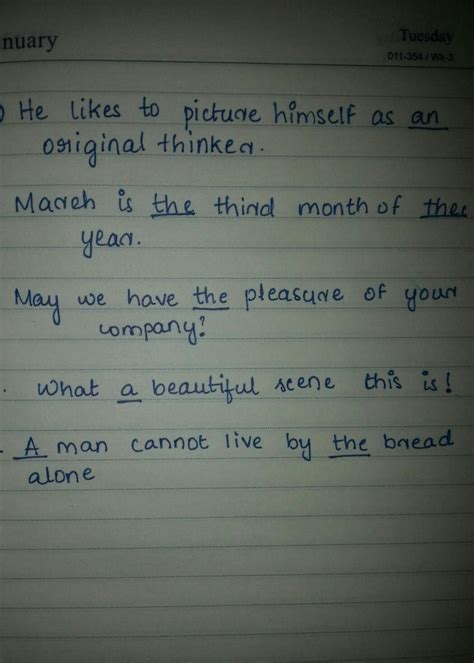 nuary
Tuesday
011-354 / Wk-3
He likes to picture himself as an
original thinker.
March is the third month of the
year.
May we have the pleasure of your
company?
What a beautiful scene this is!
A man cannot live by the bread
alone